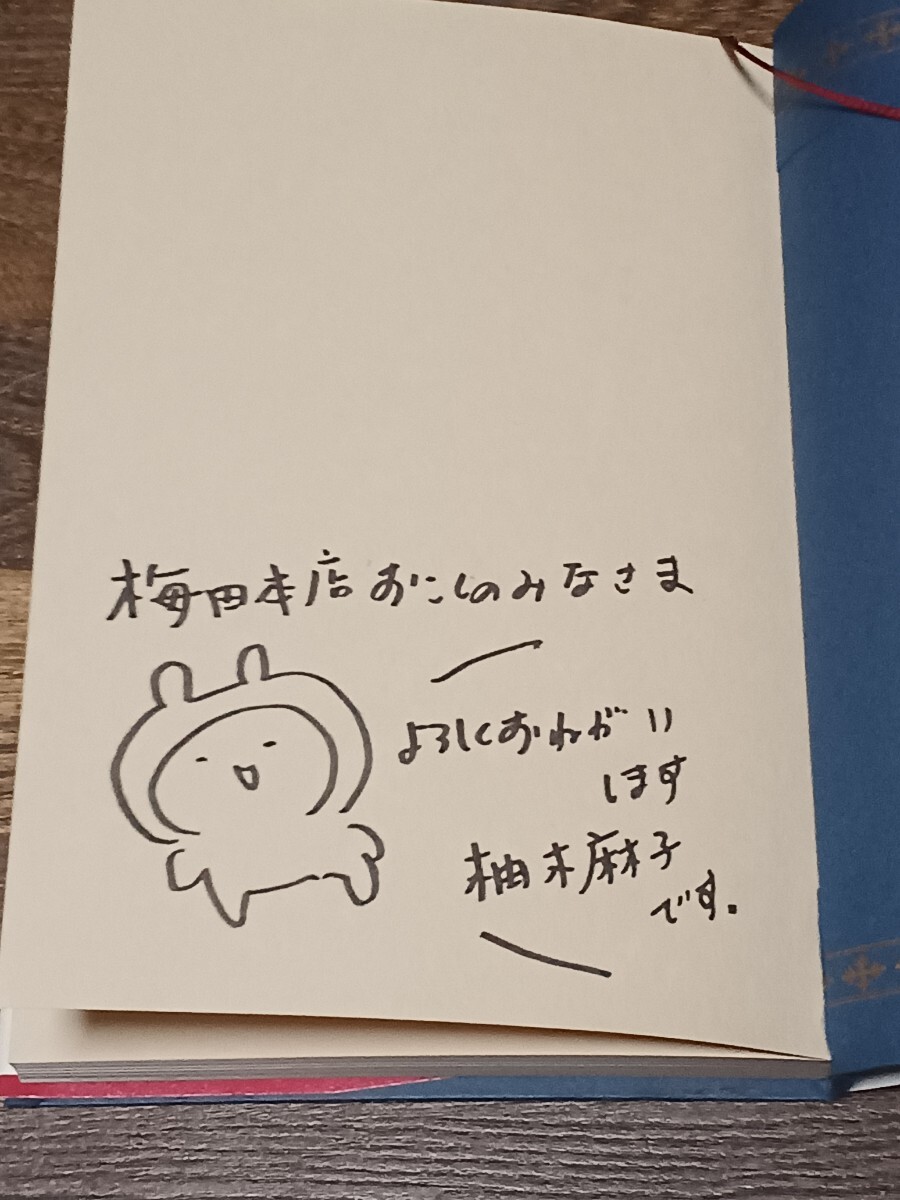 梅田本店おこしのみなさま
よろしくおねがい
します
柚木麻子
です。